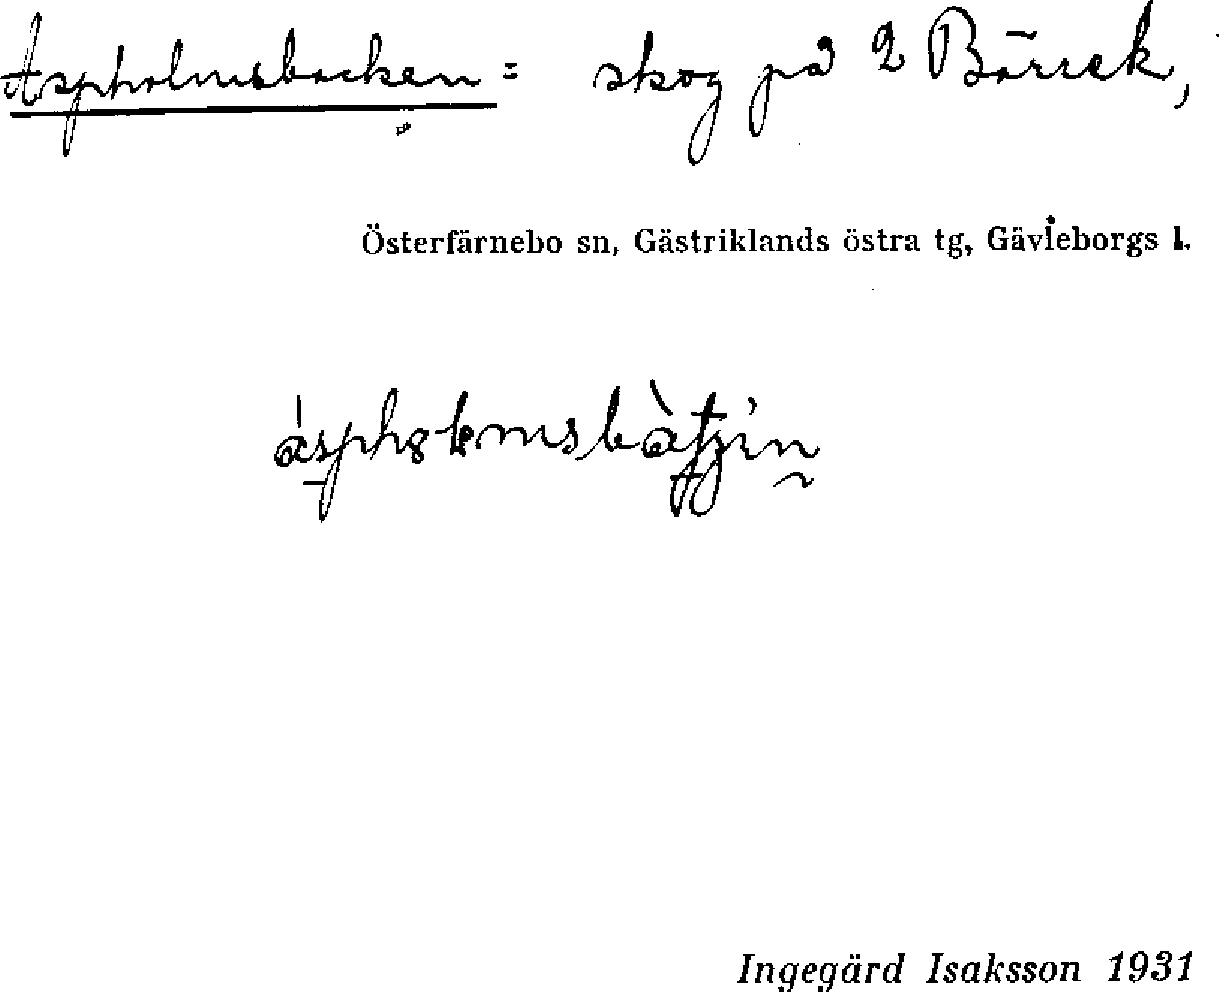 Aspholmsbacken = skog på 2 Börsek,
Österfärnebo sn, Gästriklands östra tg, Gävleborgs l.
Ingegärd Isaksson 1931